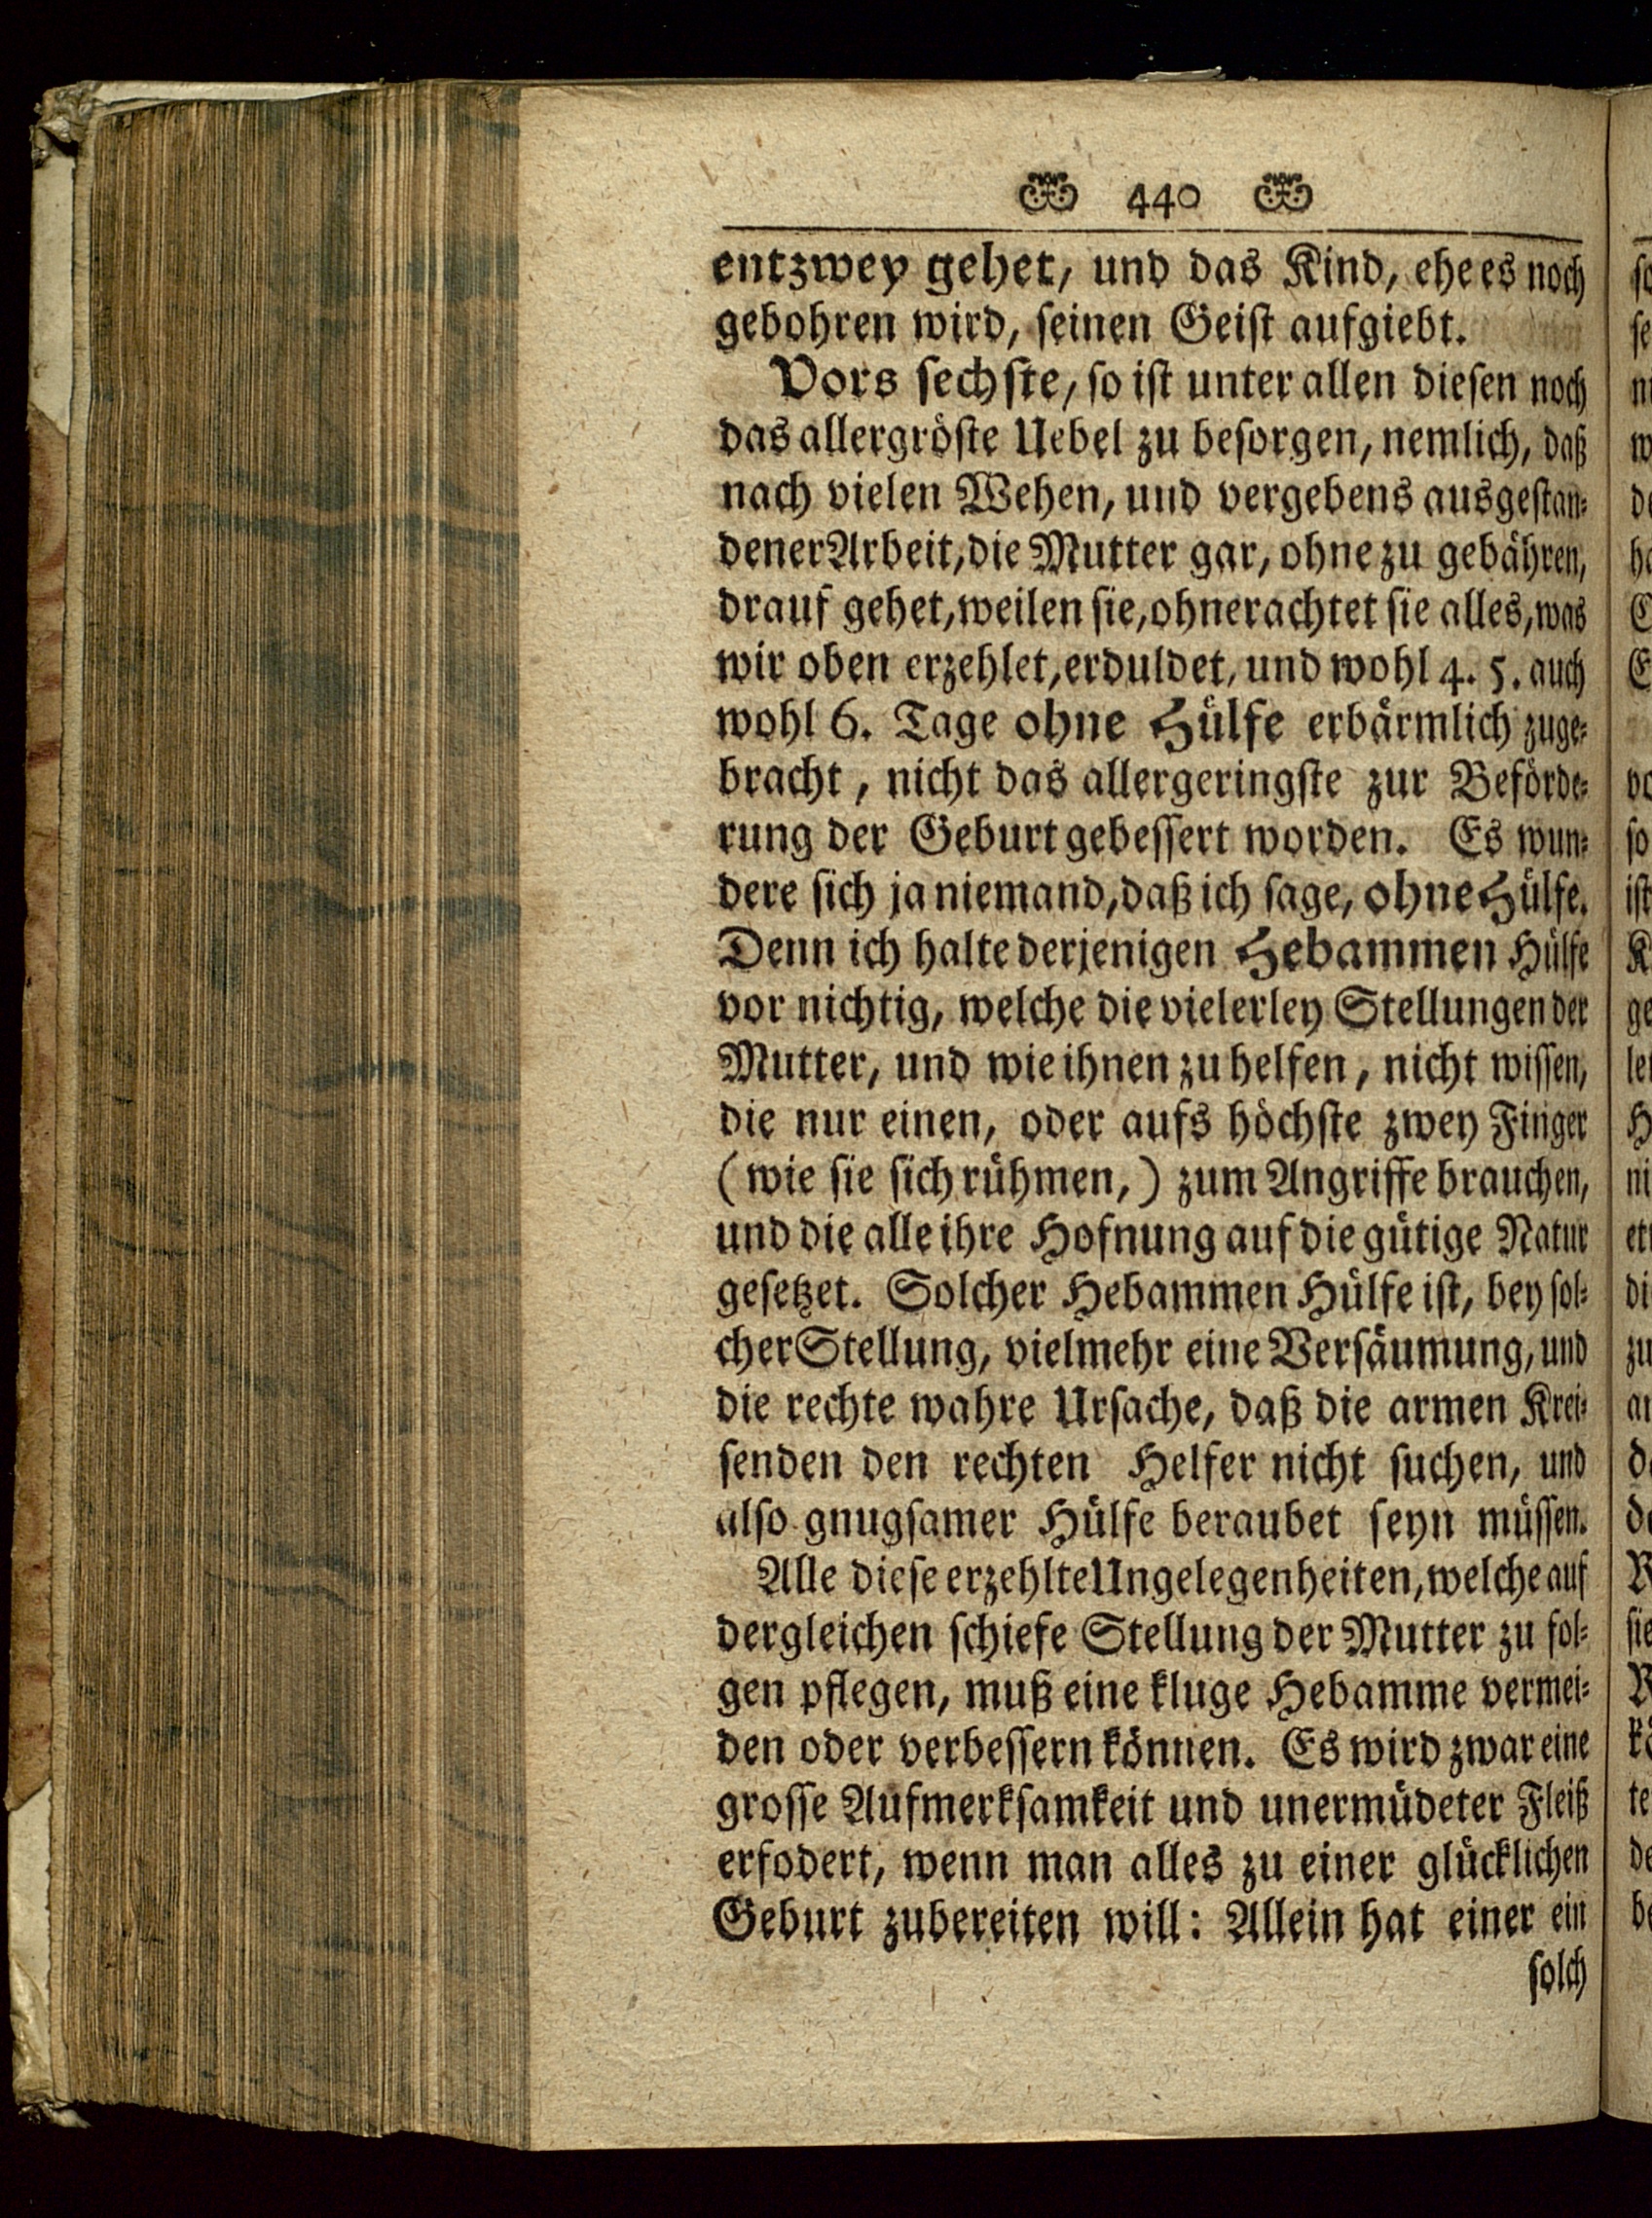 440
entzwey gehet, und das Kind, ehe es noch
gebohren wird, seinen Geist aufgiebt.
Vors sechste, so ist unter allen diesen noch
das allergröste Uebel zu besorgen, nemlich, daß
nach vielen Wehen, und vergebens ausgestan-
dener Arbeit, die Mutter gar, ohne zu gebähren,
drauf gehet, weilen sie, ohnerachtet sie alles, was
wir oben erzehlet, erduldet, und wohl 4. 5. auch
wohl 6. Tage ohne Hülfe erbärmlich zuge-
bracht, nicht das allergeringste zur Beförde-
rung der Geburt gebessert worden. Es wun-
dere sich ja niemand, daß ich sage, ohne Hülfe.
Denn ich halte derjenigen Hebammen Hülfe
vor nichtig, welche die vielerley Stellungen der
Mutter, und wie ihnen zu helfen, nicht wissen,
die nur einen, oder aufs höchste zwey Finger
(wie sie sich rühmen,) zum Angriffe brauchen,
und die alle ihre Hofnung auf die gütige Natur
gesetzet. Solcher Hebammen Hülfe ist, bey sol-
cher Stellung, vielmehr eine Versäumung, und
die rechte wahre Ursache, daß die armen Krei-
senden den rechten Helfer nicht suchen, und
also gnugsamer Hülfe beraubet seyn müssen.
Alle diese erzehlte Ungelegenheiten, welche auf
dergleichen schiefe Stellung der Mutter zu fol-
gen pflegen, muß eine kluge Hebamme vermei-
den oder verbessern können. Es wird zwar eine
grosse Aufmerksamkeit und unermüdeter Fleiß
erfodert, wenn man alles zu einer glücklichen
Geburt zubereiten will: Allein hat einer ein
solch